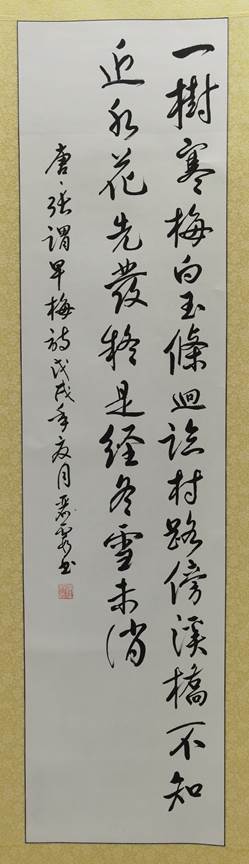 一樹寒梅白玉條迥臨村路傍溪橋不知
近水花先發疑是經冬雪未消
唐張謂早梅詩戊戌年夏月